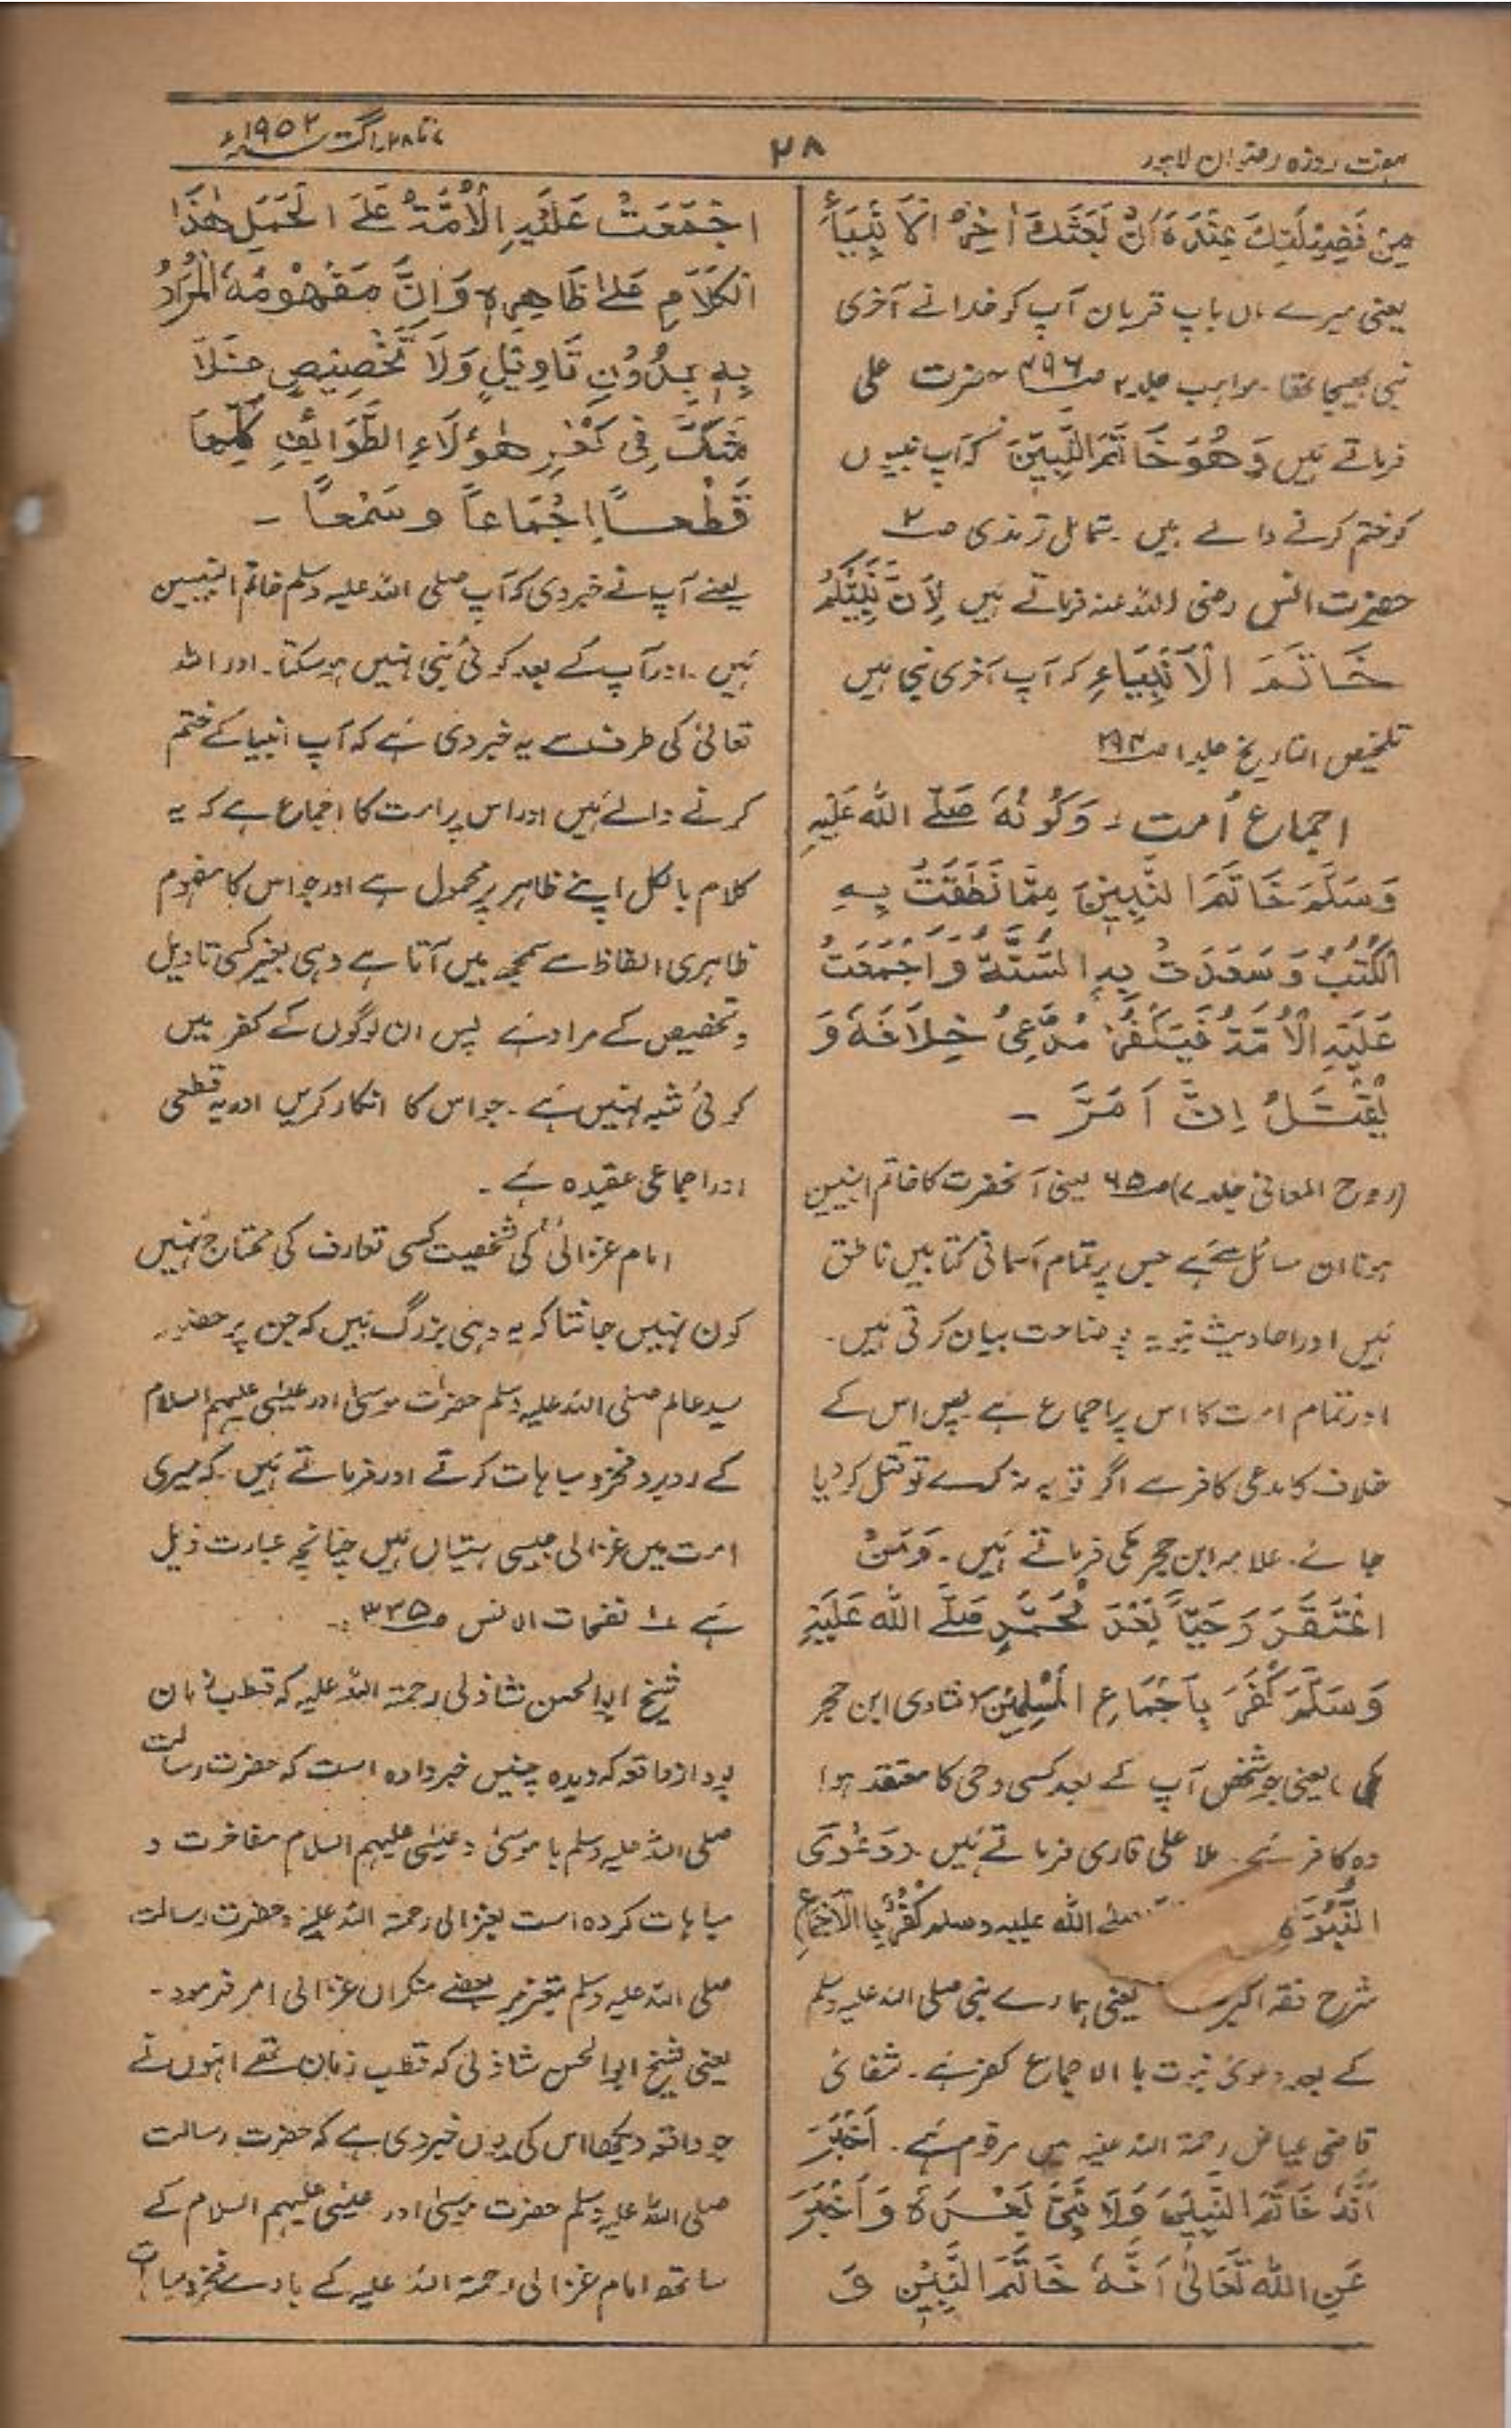 ہفت روزہ رضوان لاہور
۲۸
۷ تا ۲۸ اگست ۱۹۵۲ء
مِنْ فَضِیْلَتِكَ عِنْدَهٗ اَنْ بَعَثَكَ اٰخِرَ الْاَنْبِیَآءِ
یعنی میرے ماں باپ قربان آپ کو خدا نے آخری
نبی بھیجا تھا۔ مواہب جلد ۲ ص ۴۹۶ حضرت علی
فرماتے ہیں وَهُوَ خَاتَمُ النَّبِیّٖنَ کہ آپ نبیوں
کو ختم کرنے والے ہیں۔ شمائل ترمذی ص ۲
حضرت انس رضی اللہ عنہ فرماتے ہیں لِاَنَّ نَبِیَّكُمْ
خَاتَمُ الْاَنْبِیَاءِ کہ آپ آخری نبی ہیں
تلخیص التاریخ جلد ۱ ص ۲۹۴
اجماع اُمت :۔ وَكَوْنُهٗ صَلَّی اللہ عَلَیْهِ
وَسَلَّمَ خَاتَمَ النَّبِیّٖنَ مِمَّا نَطَقَتْ بِهِ
الْكُتُبُ وَسَعَدَتْ بِهِ السُّنَّةُ وَاَجْمَعَتْ
عَلَیْهِ الْاُمَّةُ فَیَكْفُرُ مُدَّعِیْ خِلَافَهٗ وَ
یُقْتَلُ اِنْ اَصَرَّ ۔
(روح المعانی جلد ۷) ص ۶۵ یعنی آنحضرت کا خاتم النبیین
ہونا ان مسائل سے ہے جس پر تمام آسمانی کتابیں ناطق
ہیں اور احادیث نبویہ بہ وضاحت بیان کرتی ہیں۔
اور تمام امت کا اس پر اجماع ہے پس اس کے
خلاف کا مدعی کافر ہے اگر توبہ نہ کرے تو قتل کر دیا
جائے۔ علامہ ابن حجر مکی فرماتے ہیں۔ وَمَنْ
اعْتَقَدَ وَحْیًا بَعْدَ مُحَمَّدٍ صَلَّی اللہ عَلَیْهِ
وَسَلَّمَ كَفَرَ بِاِجْمَاعِ الْمُسْلِمِیْنَ (فتاوی ابن حجر
مکی) یعنی جو شخص آپ کے بعد کسی وحی کا معتقد ہو!
وہ کافر ہے۔ ملا علی قاری فرماتے ہیں۔ وَدَعْوَی
النُّبُوَّةِ صلی اللہ علیہ وسلم كُفْرٌ بِالْاِجْمَاعِ
شرح فقہ اکبر یعنی ہمارے نبی صلی اللہ علیہ وسلم
کے بعد دعویٰ نبوت بالاجماع کفر ہے۔ شفائی
قاضی عیاض رحمۃ اللہ علیہ میں مرقوم ہے۔ اَخْبَرَ
اَنَّهٗ خَاتَمُ النَّبِیّٖنَ وَلَا نَبِیَّ بَعْدَهٗ وَاَخْبَرَ
عَنِ اللہِ تَعَالٰی اَنَّهٗ خَاتَمُ النَّبِیّٖنَ وَ
اجْمَعَتْ عَلَیْهِ الْاُمَّةُ عَلَی الْحَمْلِ هٰذَا
الْكَلَامِ عَلٰی ظَاهِرِهٖ وَاِنَّ مَفْهُوْمُهٗ الْمُرَادُ
بِهٖ بِدُوْنِ تَاوِیْلٍ وَلَا تَخْصِیْصٍ فَلَا
شَكَّ فِیْ كُفْرِ هٰؤُلَاءِ الطَّوَائِفِ كُلِّهَا
قَطْعًا اِجْمَاعًا وَسَمْعًا ۔
یعنے آپ نے خبر دی کہ آپ صلی اللہ علیہ وسلم خاتم النبیین
ہیں۔ اور آپ کے بعد کوئی نبی نہیں ہو سکتا۔ اور اللہ
تعالیٰ کی طرف سے یہ خبر دی ہے کہ آپ انبیا کے ختم
کرنے والے ہیں اور اس پر امت کا اجماع ہے کہ یہ
کلام بالکل اپنے ظاہر پر محمول ہے اور جو اس کا مفہوم
ظاہری الفاظ سے سمجھ میں آتا ہے وہی بغیر کسی تاویل
و تخصیص کے مراد ہے پس ان لوگوں کے کفر میں
کوئی شبہ نہیں ہے۔ جو اس کا انکار کریں اور یہ قطعی
اور اجماعی عقیدہ ہے ۔
امام غزالیؒ کی شخصیت کسی تعارف کی محتاج نہیں
کون نہیں جانتا کہ یہ وہی بزرگ ہیں کہ جن پر حضور
سید عالم صلی اللہ علیہ وسلم حضرات موسیٰ اور عیسیٰ علیہم السلام
کے روبرو فخر و مباہات کرتے اور فرماتے ہیں۔ کہ میری
امت میں غزالی جیسی ہستیاں ہیں چنانچہ عبارت ذیل
ہے ۱؎ نفحات الانس ص ۳۳۵ :۔
شیخ ابوالحسن شاذلی رحمۃ اللہ علیہ کہ قطب زمان
بود از واقعہ کہ دیدہ چنیں خبر دادہ است کہ حضرت رسالت
صلی اللہ علیہ وسلم با موسیٰ و عیسیٰ علیہم السلام مفاخرت و
مباہات کردہ است بغزالی رحمۃ اللہ علیہ و حضرت رسالت
صلی اللہ علیہ وسلم بتعزیر بعضے منکراں غزالی امر فرمود۔
یعنی شیخ ابوالحسن شاذلی کہ قطب زمان تھے انہوں نے
جو واقعہ دیکھا اس کی یوں خبر دی ہے کہ حضرت رسالت
صلی اللہ علیہ وسلم حضرت موسیٰ اور عیسیٰ علیہم السلام کے
ساتھ امام غزالی رحمۃ اللہ علیہ کے بارے فخر و مباہات